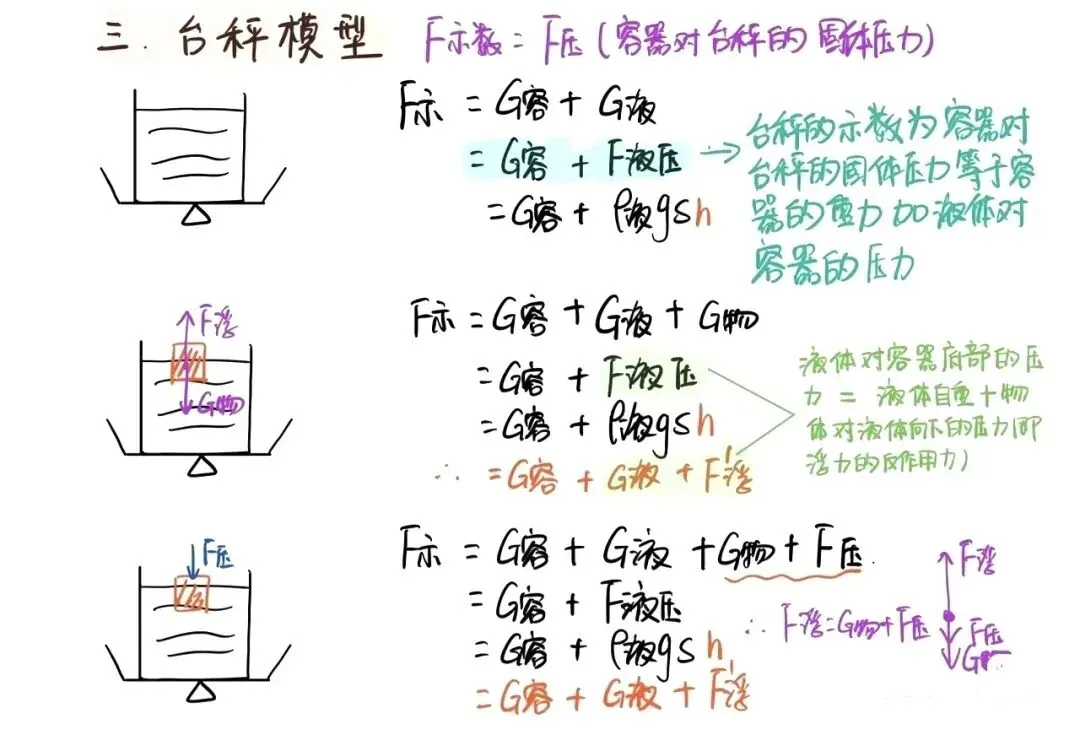 三. 台秤模型 F示数 = F压 (容器对台秤的固体压力)
F示 = G容 + G液
= G容 + F液压
= G容 + ρ液gsh
台秤的示数为容器对
台秤的固体压力等于容
器的重力加液体对
容器的压力
F浮
G物
F示 = G容 + G液 + G物
= G容 + F液压
= G容 + ρ液gsh
∴ = G容 + G液 + F浮'
液体对容器底部的压
力 = 液体自重 + 物
体对液体向下的压力(即
浮力的反作用力)
F压
F示 = G容 + G液 + G物 + F压
= G容 + F液压
= G容 + ρ液gsh
= G容 + G液 + F浮'
∴ F浮=G物+F压
F浮
F压